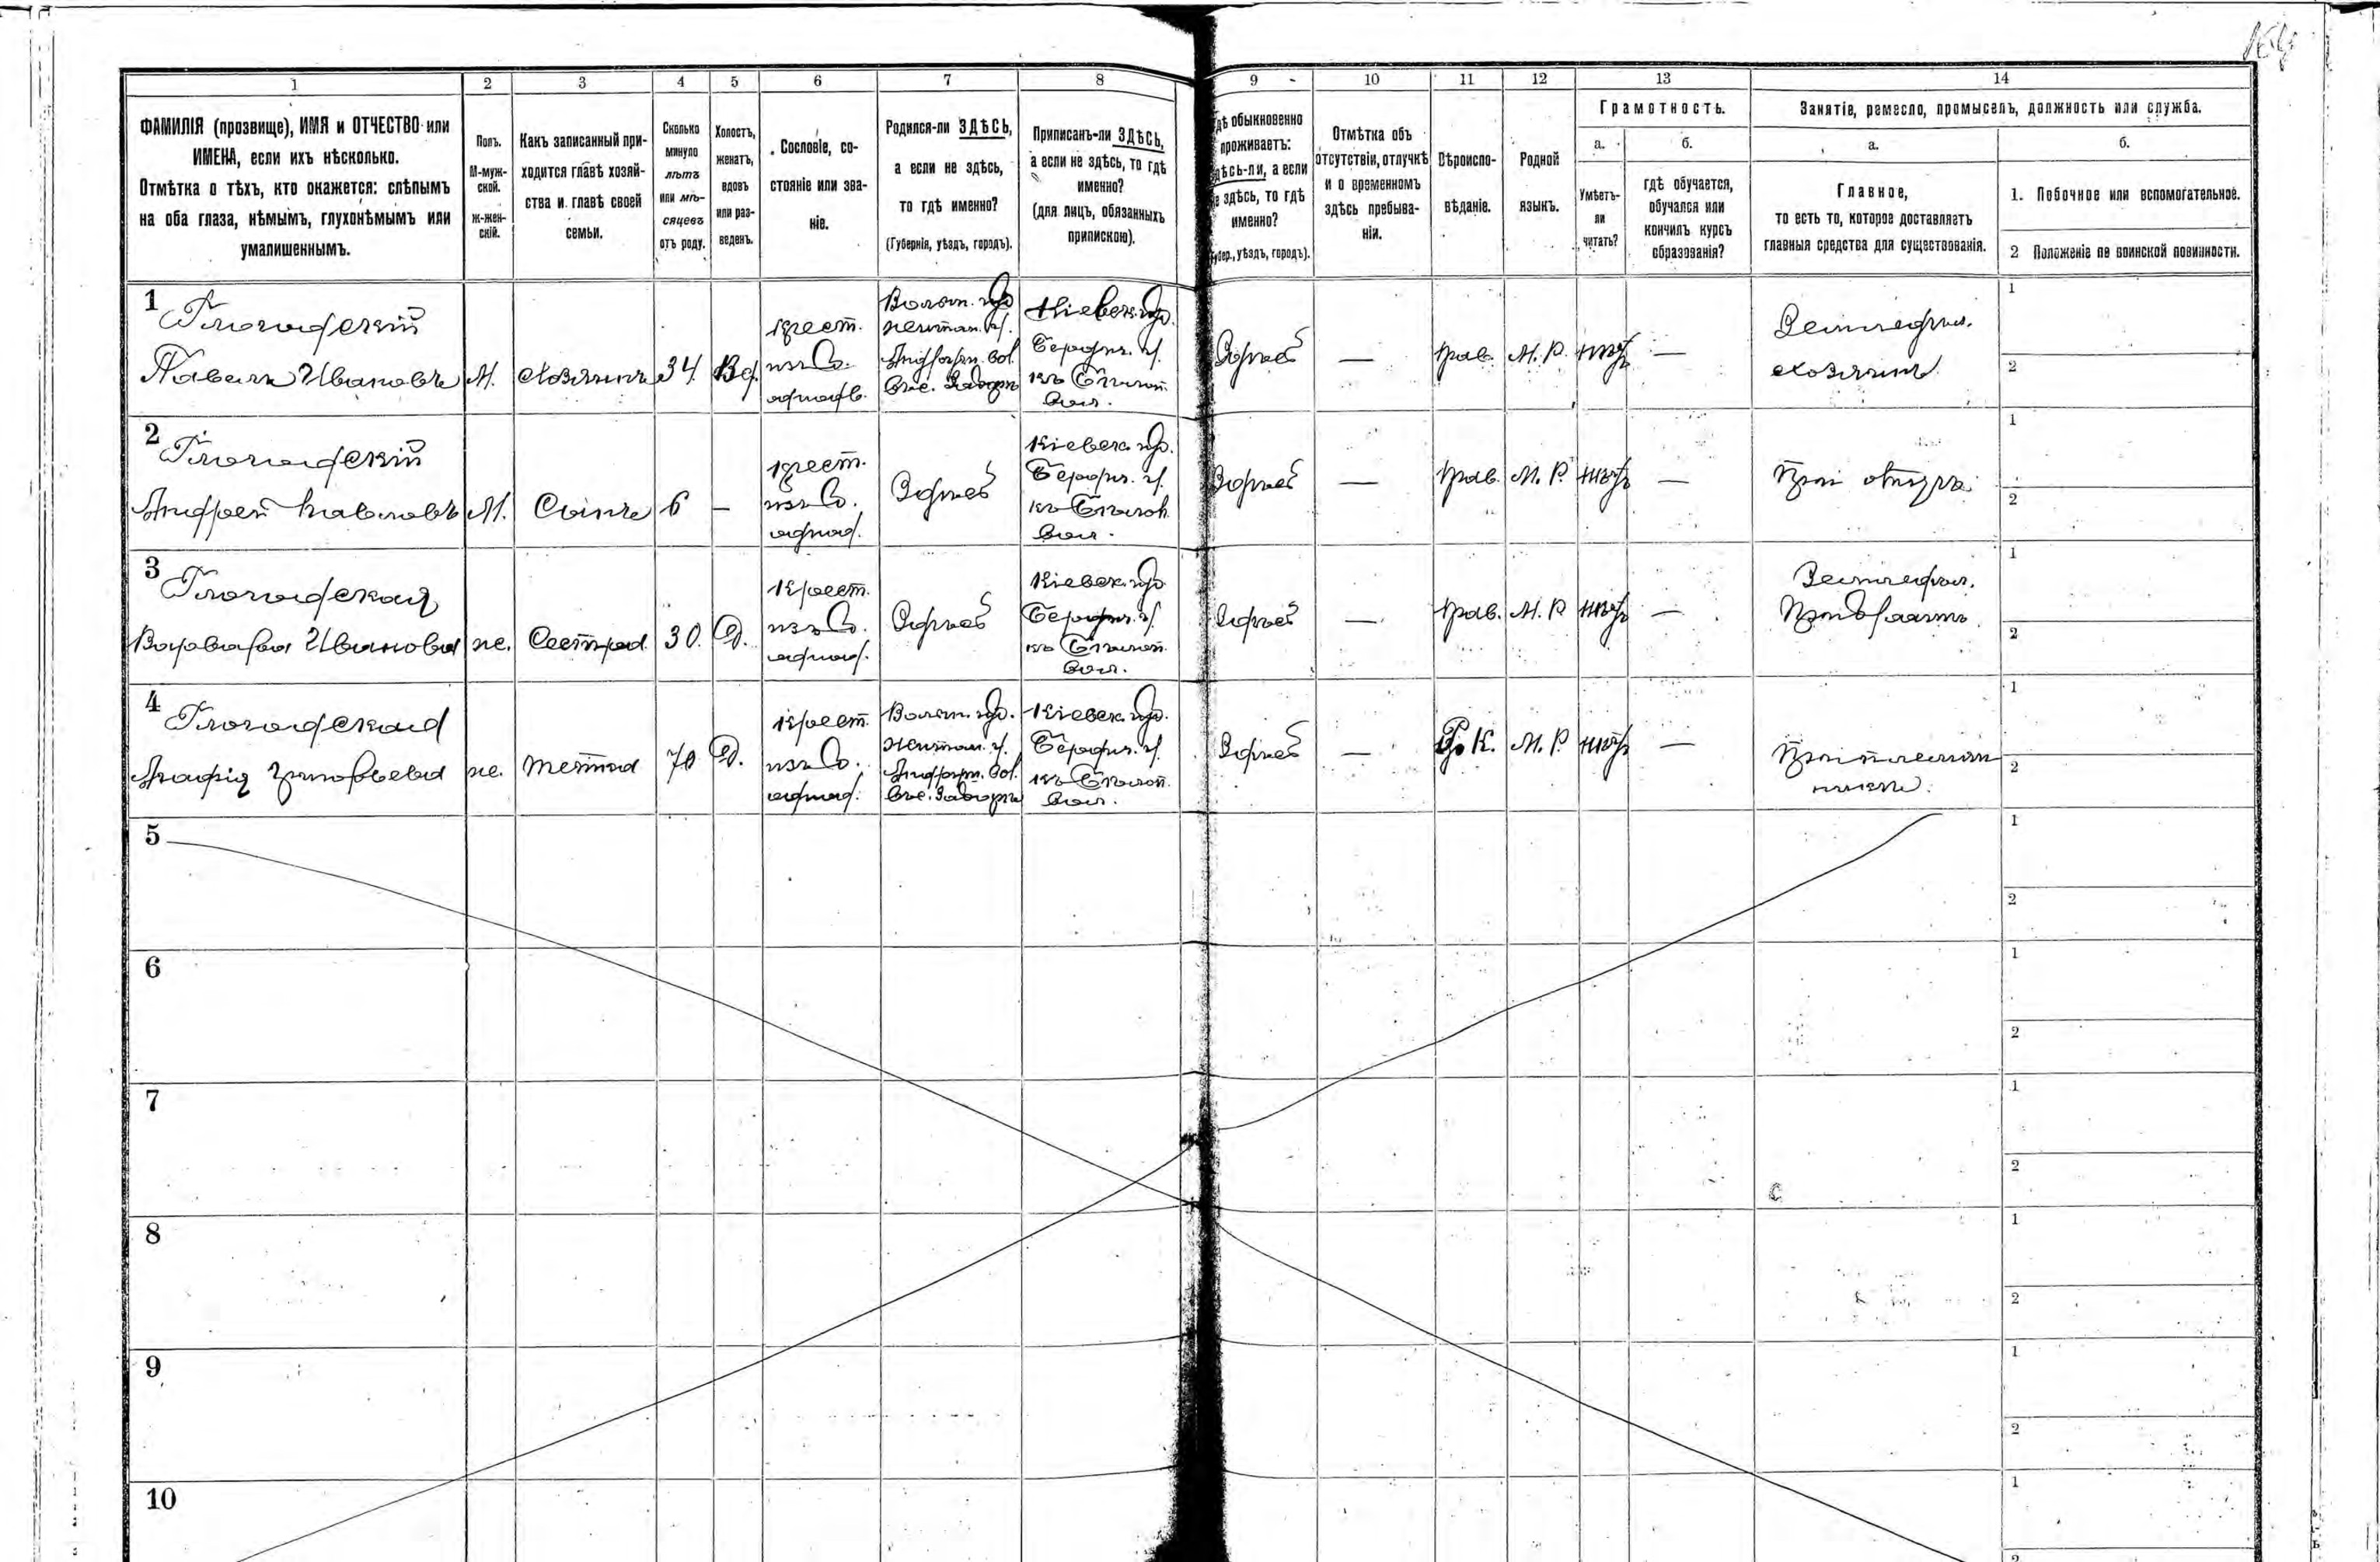 164
1 2 3 4 5 6 7 8 9 10 11 12 13 14
ФАМИЛІЯ (прозвище), ИМЯ и ОТЧЕСТВО или
ИМЕНА, если ихъ нѣсколько.
Отмѣтка о тѣхъ, кто окажется: слѣпымъ
на оба глаза, нѣмымъ, глухонѣмымъ или
умалишеннымъ.
Полъ.
М-муж-
ской.
ж-жен-
скій.
Какъ записанный при-
ходится главѣ хозяй-
ства и главѣ своей
семьи.
Сколько
минуло
лѣтъ
или мѣ-
сяцевъ
отъ роду.
Холостъ,
женатъ,
вдовъ
или раз-
веденъ.
Сословіе, со-
стояніе или зва-
ніе.
Родился-ли ЗДѢСЬ,
а если не здѣсь,
то гдѣ именно?
(Губернія, уѣздъ, городъ).
Приписанъ-ли ЗДѢСЬ,
а если не здѣсь, то гдѣ
именно?
(для лицъ, обязанныхъ
припискою).
Гдѣ обыкновенно
проживаетъ:
здѣсь-ли, а если
не здѣсь, то гдѣ
именно?
(Губер., уѣздъ, городъ).
Отмѣтка объ
отсутствіи, отлучкѣ
и о временномъ
здѣсь пребыва-
ніи.
Вѣроиспо-
вѣданіе.
Родной
языкъ.
Грамотность.
а.
Умѣетъ-
ли
читать?
б.
гдѣ обучается,
обучался или
кончилъ курсъ
образованія?
Занятіе, ремесло, промыселъ, должность или служба.
а.
Главное,
то есть то, которое доставляетъ
главныя средства для существованія.
б.
1. Побочное или вспомогательное.
2 Положеніе по воинской повинности.
1
Павелъ Ивановъ
М.
Хозяинъ
34
Вд.
крест.
Волын. губ.
Кіевск. губ.
Бердич. у.
вол.
Здѣсь
—
Прав.
М. Р.
нѣтъ
—
Земледѣл.
хозяинъ
1
2
2
Андрей Павловъ
М.
Сынъ
6
—
крест.
Здѣсь
Кіевск. губ.
Бердич. у.
вол.
Здѣсь
—
Прав.
М. Р.
нѣтъ
—
При отцѣ
1
2
3
Варвара Иванова
ж.
Сестра
30.
Д.
Крест.
Здѣсь
Кіевск. губ.
Бердич. у.
вол.
Здѣсь
—
Прав.
М. Р.
нѣтъ
—
Земледѣл.
При братѣ
1
2
4
ж.
тетка
70
Д.
Крест.
Волын. губ.
Кіевск. губ.
Бердич. у.
вол.
Здѣсь
—
Р. К.
М. Р.
нѣтъ
—
При племян
никѣ.
1
2
5
1
2
6
1
2
7
1
2
8
1
2
9
1
2
10
1
2